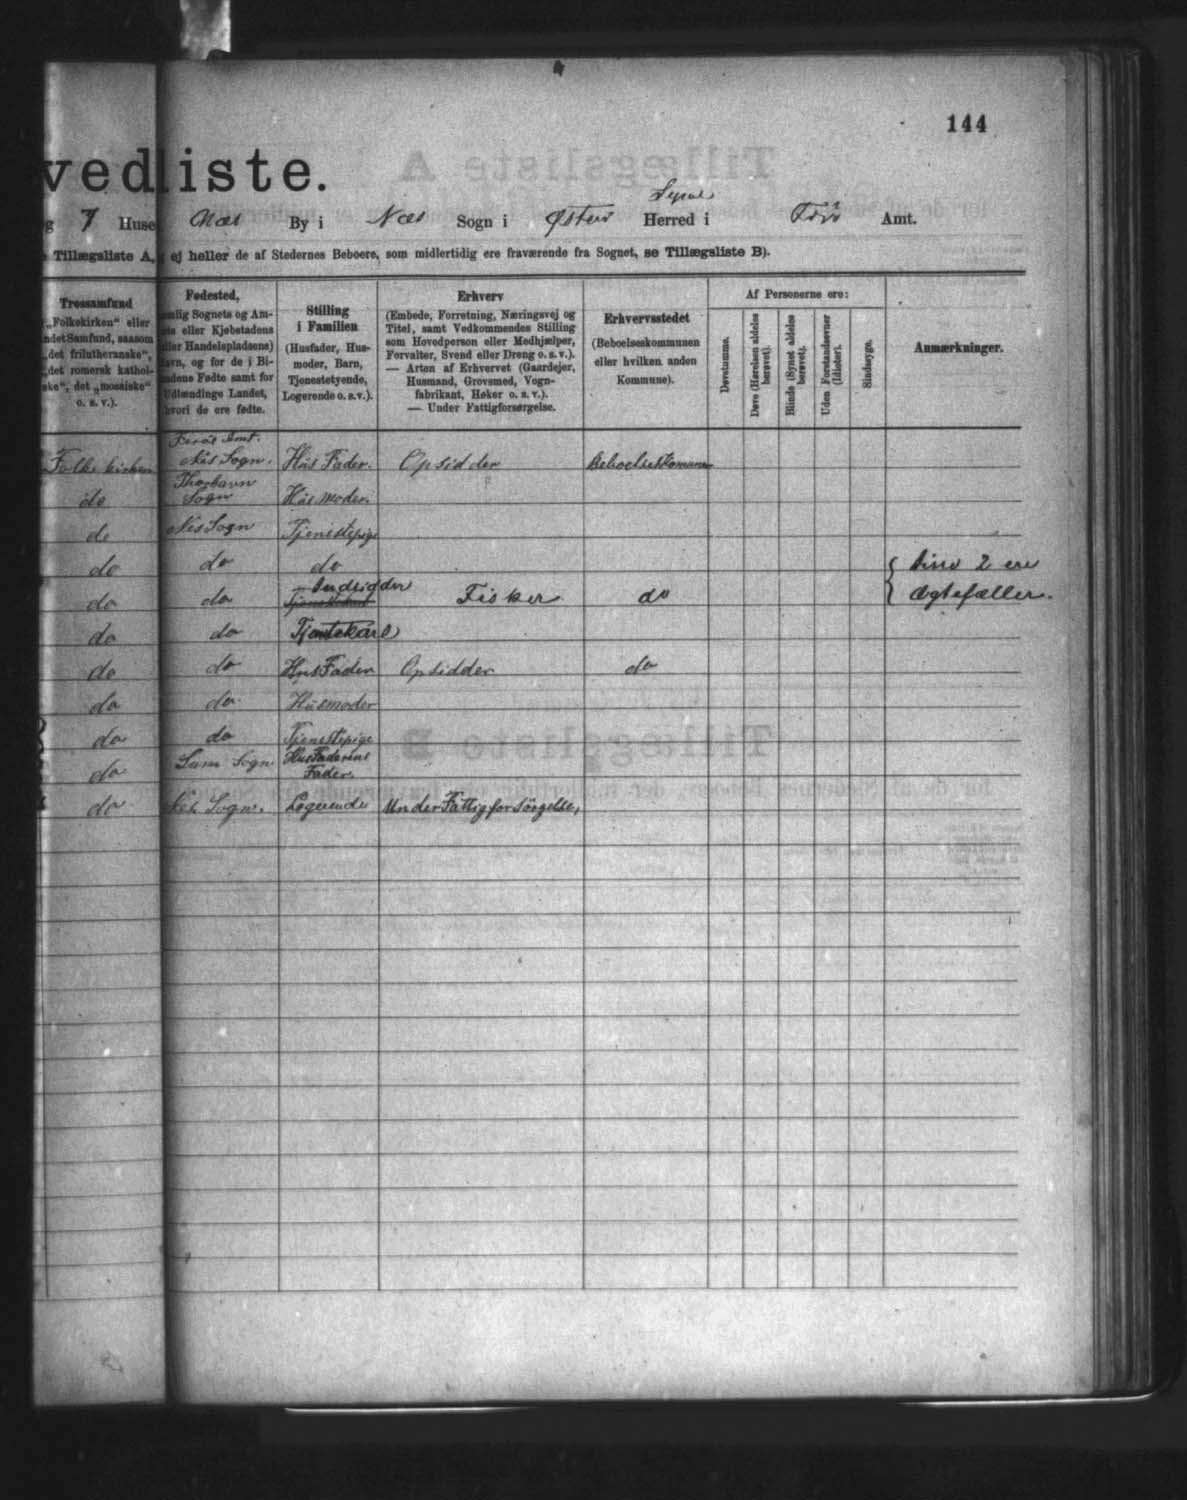 144
vedliste.
Syssel
g 7 Huse Næs By i Næs Sogn i Østerø Herred i Færø Amt.
Tillægsliste A, ej heller de af Stedernes Beboere, som midlertidig ere fraværende fra Sognet, se Tillægsliste B).
Trossamfund
„Folkekirken“ eller
ndet Samfund, saasom
„det frilutheranske“,
„det romersk kathol-
ske“, det „mosaiske“
o. s. v.).
Fødested,
mlig Sognets og Am-
ts eller Kjøbstadens
ller Handelspladsens)
avn, og for de i Bi-
ndene Fødte samt for
Udlændinge Landet,
hvori de ere fødte.
Stilling
i Familien
(Husfader, Hus-
moder, Barn,
Tjenestetyende,
Logerende o. s. v.).
Erhverv
(Embede, Forretning, Næringsvej og
Titel, samt Vedkommendes Stilling
som Hovedperson eller Medhjælper,
Forvalter, Svend eller Dreng o. s. v.).
— Arten af Erhvervet (Gaardejer,
Husmand, Grovsmed, Vogn-
fabrikant, Høker o. s. v.).
— Under Fattigforsørgelse.
Erhvervsstedet
(Beboelseskommunen
eller hvilken anden
Kommune).
Af Personerne ere:
Døvstumme.
Døve (Hørelsen aldeles
berøvet).
Blinde (Synet aldeles
berøvet).
Uden Forstandsevner
(Idioter).
Sindssyge.
Anmærkninger.
Færøe Amt.
Folkekirken Næs Sogn. Hús Fader. Opsidder Beboelseskommunen
Thorhavn
do Sogn Hús Moder.
do Næs Sogn Tjenestepige
do do do disse 2 ere
Indsidder
do do Fisker do Ægtefæller.
do do Tjenstekarl
do do HusFader Opsidder do
do do Húsmoder
do do Tjenestepige
do Sogn HusFaderens
Fader.
do Sogn. Logerende Under Fattigforsørgelse,